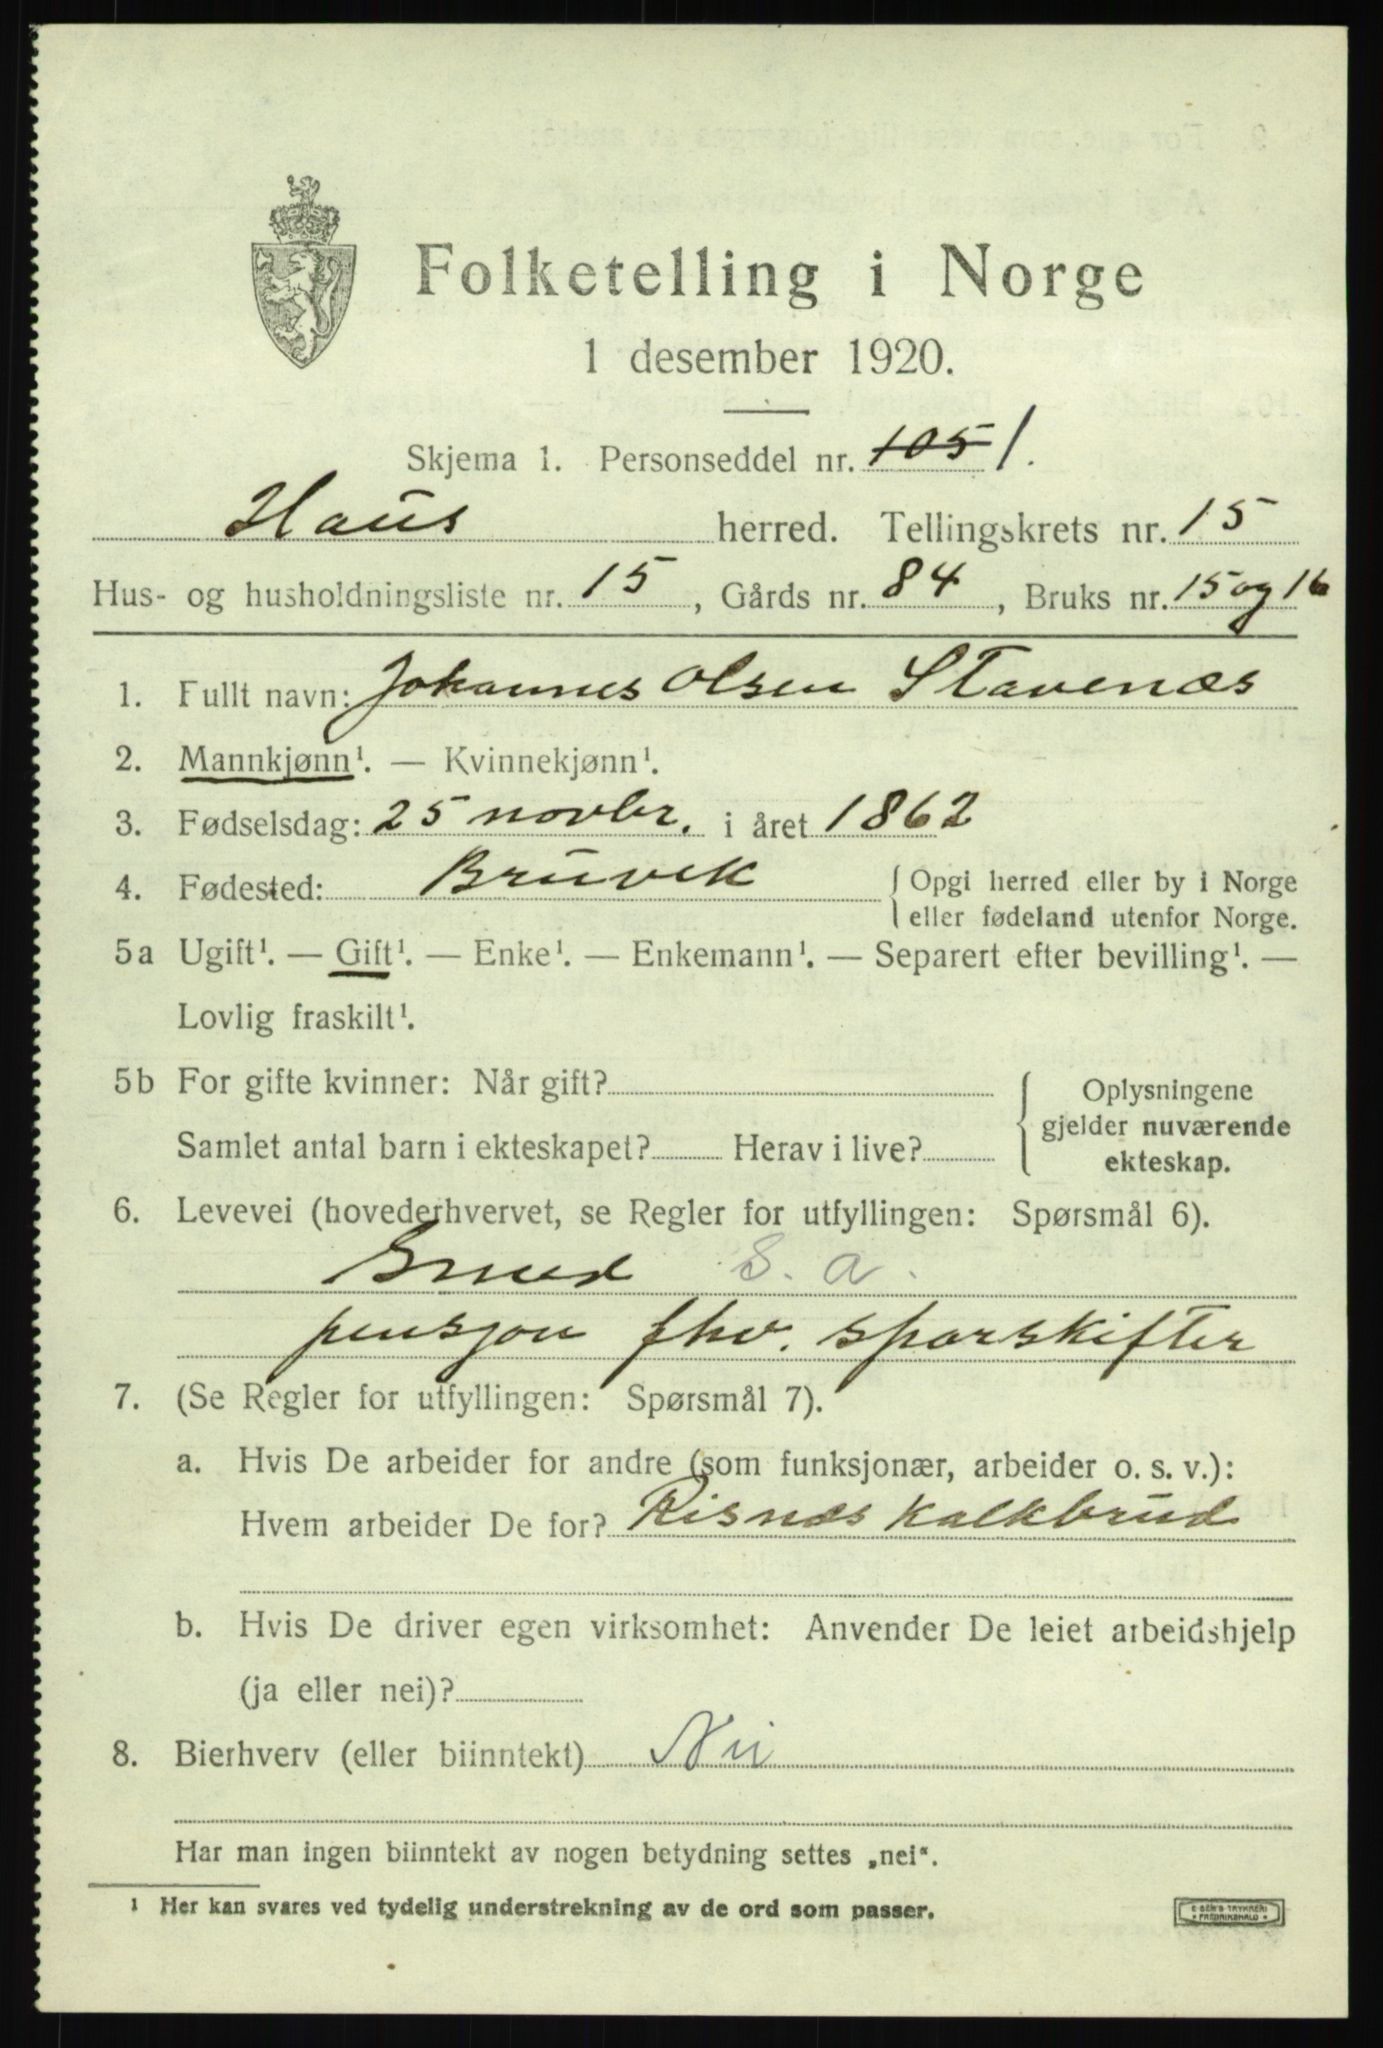 Folketelling i Norge
1 desember 1920.
Skjema 1. Personseddel nr. 105 1.
Haus herred. Tellingskrets nr. 15
Hus- og husholdningsliste nr. 15, Gårds nr. 84, Bruks nr. 15 og 16
1. Fullt navn: Johannes Olsen Stavenæs
2. Mannkjønn¹. — Kvinnekjønn¹.
3. Fødselsdag: 25 novbr. i året 1862
4. Fødested: Bruvik { Opgi herred eller by i Norge
eller fødeland utenfor Norge.
5a Ugift¹. — Gift¹. — Enke¹. — Enkemann¹. — Separert efter bevilling¹. —
Lovlig fraskilt¹.
5b For gifte kvinner: Når gift?
Samlet antal barn i ekteskapet? Herav i live?
{ Oplysningene
gjelder nuværende
ekteskap.
6. Levevei (hovederhvervet, se Regler for utfyllingen: Spørsmål 6).
Smed S. a.
pensjon fhv. sporskifter
7. (Se Regler for utfyllingen: Spørsmål 7).
a. Hvis De arbeider for andre (som funksjonær, arbeider o. s. v.):
Hvem arbeider De for? Risnæs Kalkbrud
b. Hvis De driver egen virksomhet: Anvender De leiet arbeidshjelp
(ja eller nei)?
8. Bierhverv (eller biinntekt) Nei
Har man ingen biinntekt av nogen betydning settes „nei“.
¹ Her kan svares ved tydelig understrekning av de ord som passer.